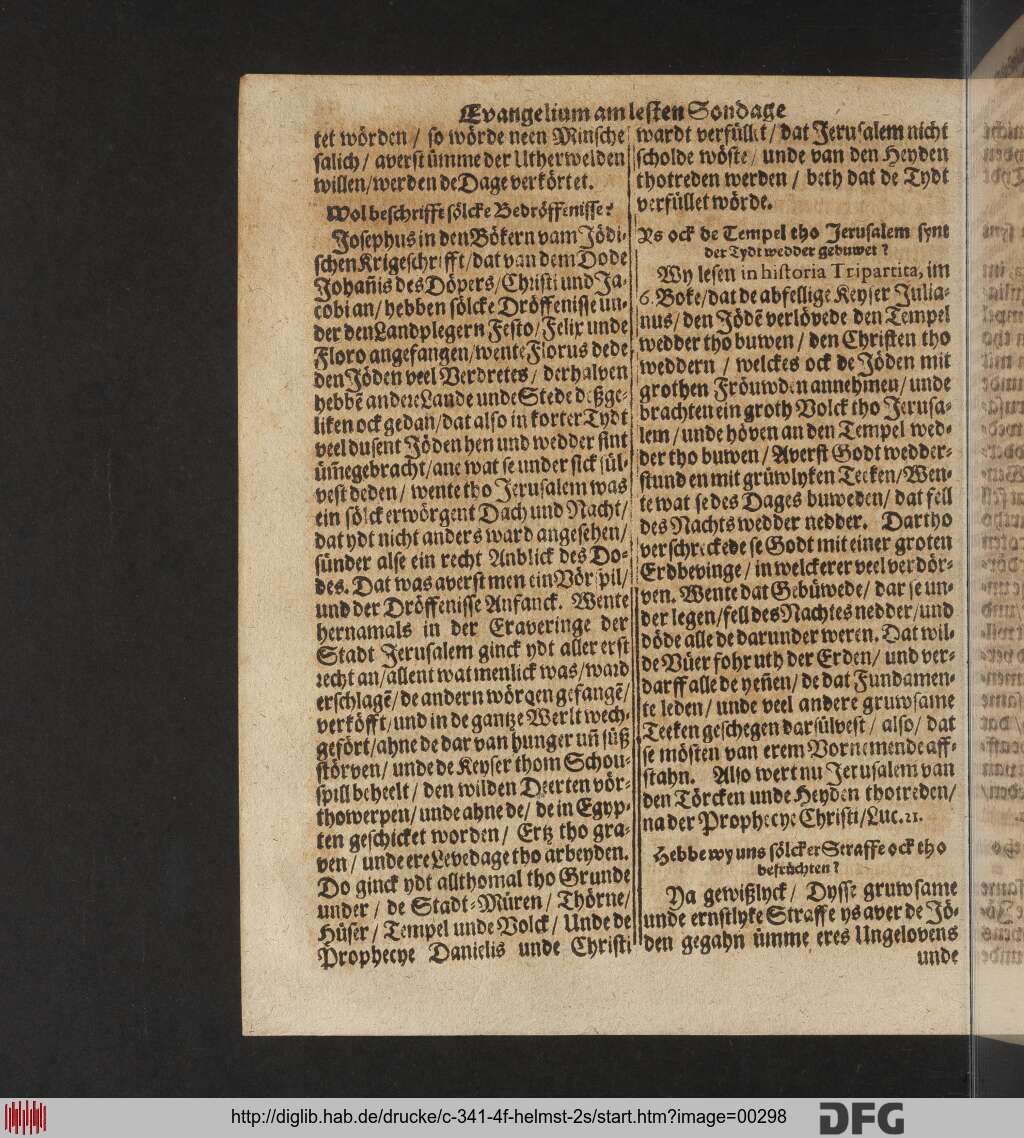 Evangelium am lesten Sondage
tet wörden / so wörde neen Minsche
salich / averst ümme der Utherwelden
willen / werden de Dage verkörtet.
Wol beschrifft sölcke Bedröffenisse?
Josephus in den Bökern vam Jödi-
schen Krige schrifft / dat van dem Dode
Johan̄is des Döpers / Christi und Ja-
cobi an / hebben sölcke Dröffenisse un-
der den Landplegern Festo / Felix unde
Floro angefangen / wente Florus dede
den Jöden veel Verdretes / derhalven
hebbē andere Lande unde Stede deßge-
liken ock gedan / dat also in korter Tydt
veel dusent Jöden hen und wedder sint
üm̄egebracht / ane wat se under sick sül-
vest deden / wente tho Jerusalem was
ein sölck erwörgent Dach und Nacht /
dat ydt nicht anders ward angesehen /
sünder alse ein recht Anblick des Do-
des. Dat was averst men ein Vörspil /
und der Dröffenisse Anfanck. Wente
hernamals in der Eraveringe der
Stadt Jerusalem ginck ydt aller erst
recht an / allent wat menlick was / ward
erschlagē / de andern wörgen gefangē /
verköfft / und in de gantze Werlt wech-
gefört / ahne de dar van hunger un̄ süß
störven / unde de Keyser thom Schou-
spill beheelt / den wilden Deerten vör-
thowerpen / unde ahne de / de in Egyp-
ten geschicket worden / Ertz tho gra-
ven / unde ere Levedage tho arbeyden.
Do ginck ydt allthomal tho Grunde
under / de Stadt-Müren / Thörne /
Hüser / Tempel unde Volck / Unde de
Prophecye Danielis unde Christi
wardt verfüllet / dat Jerusalem nicht
scholde wöste / unde van den Heyden
thotreden werden / beth dat de Tydt
verfüllet wörde.
Ys ock de Tempel tho Jerusalem synt
der Tydt wedder gebuwet?
Wy lesen in historia Tripartita, im
6. Boke / dat de abfellige Keyser Julia-
nus / den Jödē verlövede den Tempel
wedder tho buwen / den Christen tho
weddern / welckes ock de Jöden mit
grothen Fröuwden annehmen / unde
brachten ein groth Volck tho Jerusa-
lem / unde höven an den Tempel wed-
der tho buwen / Averst Godt wedder-
stund en mit grüwlyken Teeken / Wen-
te wat se des Dages buweden / dat fell
des Nachts wedder nedder. Dartho
verschreckede se Godt mit einer groten
Erdbevinge / in welckerer veel verdör-
ven. Wente dat Gebüwede / dar se un-
der legen / fell des Nachtes nedder / und
döde alle de darunder weren. Dat wil-
de Vüer fohr uth der Erden / und ver-
darff alle de yen̄en / de dat Fundamen-
te leden / unde veel andere gruwsame
Teeken geschegen darsülvest / also / dat
se mösten van erem Vornemende aff-
stahn. Also wert nu Jerusalem van
den Törcken unde Heyden thotreden /
na der Prophecye Christi / Luc. 21.
Hebbe wy uns sölcker Straffe ock tho
befrüchten?
Ya gewißlyck / Dysse gruwsame
unde ernstlyke Straffe ys aver de Jö-
den gegahn ümme eres Ungelovens
unde
http://diglib.hab.de/drucke/c-341-4f-helmst-2s/start.htm?image=00298
DFG